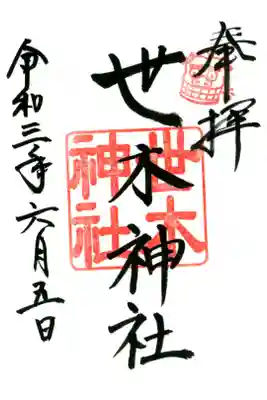 奉拝
世木神社
世木
神社
令和三年六月五日